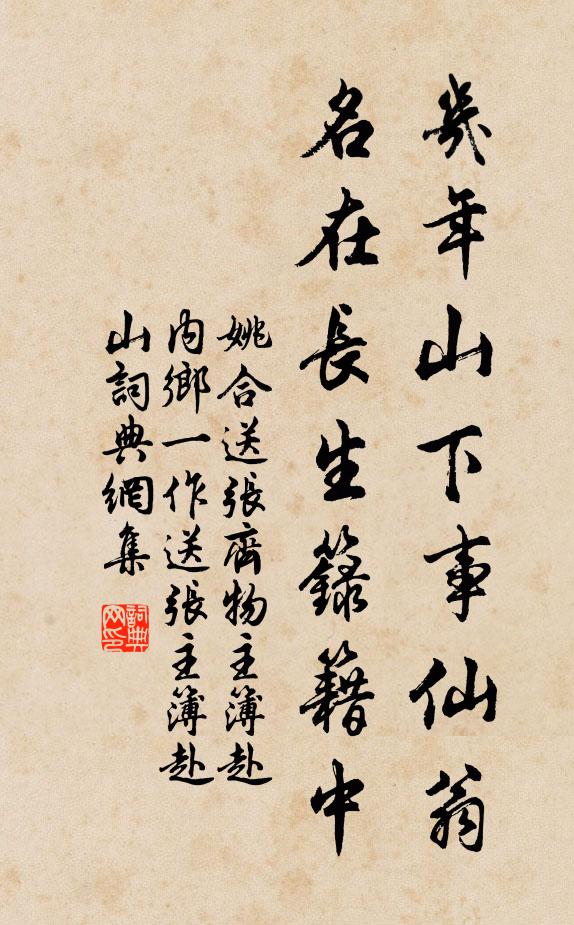 幾年山下事仙翁
名在長生籙籍中
姚合送張齊物主簿赴
內鄉一作送張主簿赴
山詞典網集
詞典
网印